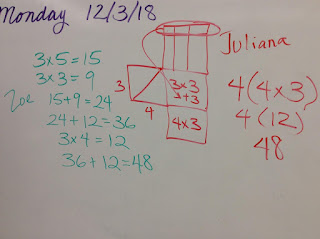 Monday 12/3/18
3x5=15
3x3=9
Zoe 15+9=24
24+12=36
3x4=12
36+12=48
3
4
3x3
3+3
4x3
Juliana
4(4x3)
4(12)
48